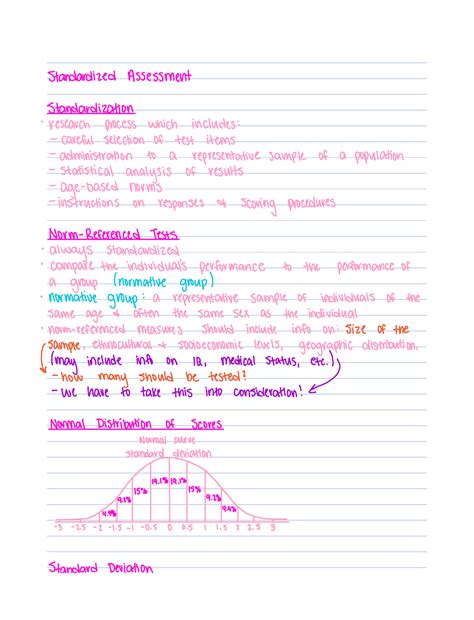 Standardized Assessment
Standardization
• research process which includes:
- careful selection of test items
- administration to a representative sample of a population
- statistical analysis of results
- age-based norms
- instructions on responses & scoring procedures
Norm-Referenced Tests
• always standardized
• compare the individual's performance to the performance of
a group (normative group)
• normative group: a representative sample of individuals of the
same age & often the same sex as the individual
• norm-referenced measures should include info on: size of the
sample, ethnicultural & socioeconomic levels, geographic distribution.
(may include info on IQ, medical status, etc.)
- how many should be tested?
- we have to take this into consideration!
Normal Distribution of Scores
Normal curve
standard deviation
19.1% 19.1%
15% 15%
9.2% 9.2%
4.4% 4.4%
-3 -2.5 -2 -1.5 -1 -0.5 0 0.5 1 1.5 2 2.5 3
Standard Deviation